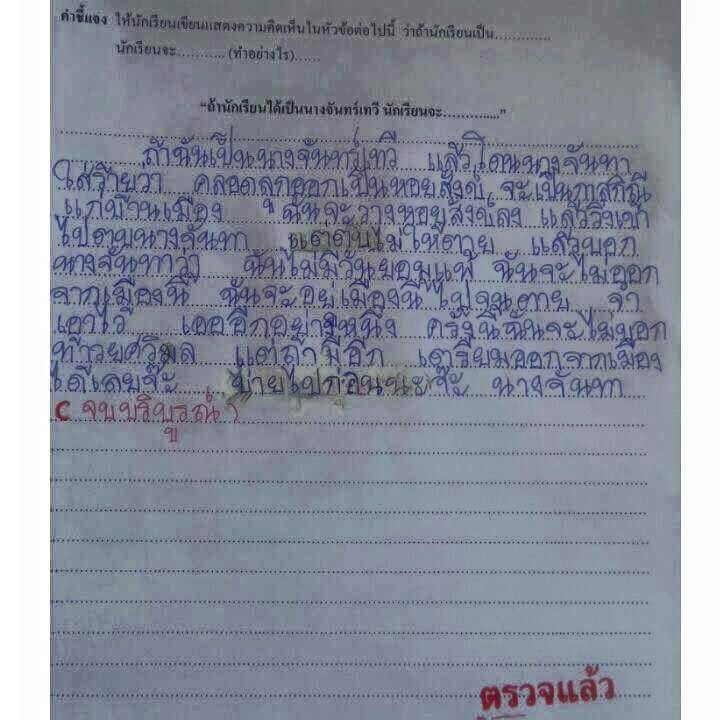 คำชี้แจง ให้นักเรียนเขียนแสดงความคิดเห็นในหัวข้อต่อไปนี้ ว่าถ้านักเรียนเป็น.............
นักเรียนจะ........... (ทำอย่างไร)......
"ถ้านักเรียนได้เป็นนางจันทร์เทวี นักเรียนจะ............."
ถ้าฉันเป็นนางจันทร์เทวี แล้วโดนนางจันทา
ใส่ร้ายว่า คลอดลูกออกเป็นหอยสังข์ จะเป็นกาลกิณี
แก่บ้านเมือง ฉันจะวางหอยสังข์ลง แล้ววิ่งเข้า
ไปตบนางจันทา แต่ตบไม่ให้ตาย แล้วบอก
นางจันทาว่า ฉันไม่มีวันยอมแพ้ ฉันจะไม่ออก
จากเมืองนี้ ฉันจะอยู่เมืองนี้ไปจนตาย จำ
เอาไว้ เออ อีกอย่างหนึ่ง ครั้งนี้ฉันจะไม่บอก
ท้าวยศวิมล แต่ถ้ามีอีก เตรียมออกจากเมือง
ได้เลยจ๊ะ บ๊ายไปก่อนนะจ๊ะ นางจันทา
( จบบริบูรณ์ )
ตรวจแล้ว